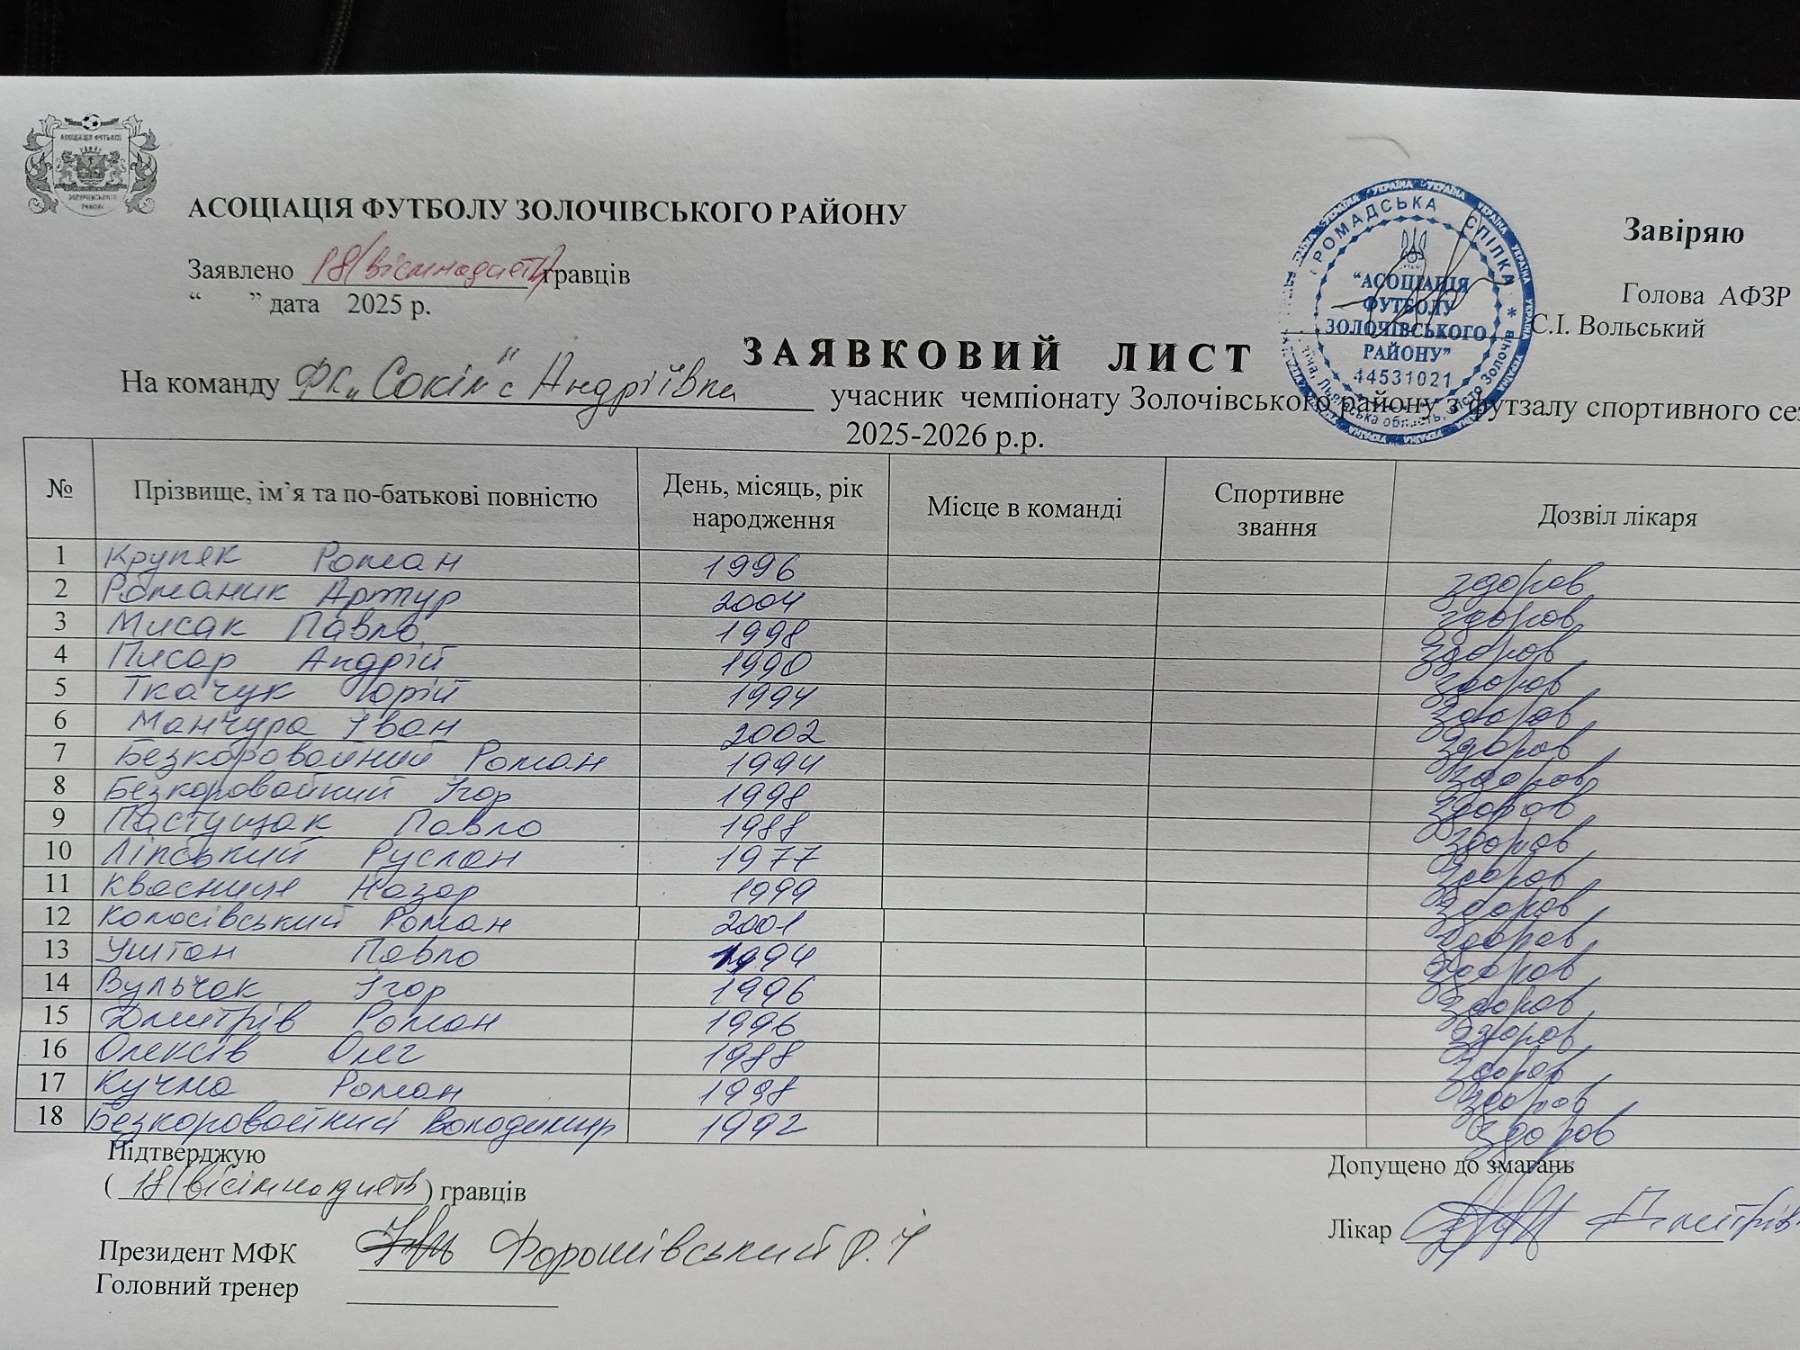 АСОЦІАЦІЯ ФУТБОЛУ ЗОЛОЧІВСЬКОГО РАЙОНУ
Завіряю
Заявлено 18(вісімнадцять) гравців
Голова АФЗР
“ ” дата 2025 р.
С.І. Вольський
УКРАЇНА УКРАЇНА УКРАЇНА
ГРОМАДСЬКА СПІЛКА
“АСОЦІАЦІЯ
ФУТБОЛУ
ЗОЛОЧІВСЬКОГО
РАЙОНУ”
44531021
Львівська область, місто Золочів
ЗАЯВКОВИЙ ЛИСТ
На команду ФК „Сокіл" с Андріївка учасник чемпіонату Золочівського району з футзалу спортивного сез
2025-2026 р.р.
№ Прізвище, ім’я та по-батькові повністю День, місяць, рік народження Місце в команді Спортивне звання Дозвіл лікаря
1 Крупяк Роман 1996 здоров
2 Романик Артур 2004 здоров
3 Мисак Павло 1998 здоров
4 Писар Андрій 1990 здоров
5 Ткачук Юрій 1994 здоров
6 Манчура Іван 2002 здоров
7 Безкоровайний Роман 1994 здоров
8 Безкоровайний Ігор 1998 здоров
9 Пастущак Павло 1988 здоров
10 Ліпський Руслан 1977 здоров
11 Квасниця Назар 1999 здоров
12 Колосівський Роман 2001 здоров
13 Уштан Павло 1994 здоров
14 Вульчак Ігор 1996 здоров
15 Дмитрів Роман 1996 здоров
16 Олексів Олег 1988 здоров
17 Кучма Роман 1998 здоров
18 Безкоровайний Володимир 1992 здоров
Підтверджую
Допущено до змагань
( 18(вісімнадцять ) гравців
Лікар Дмитрів
Президент МФК
Головний тренер